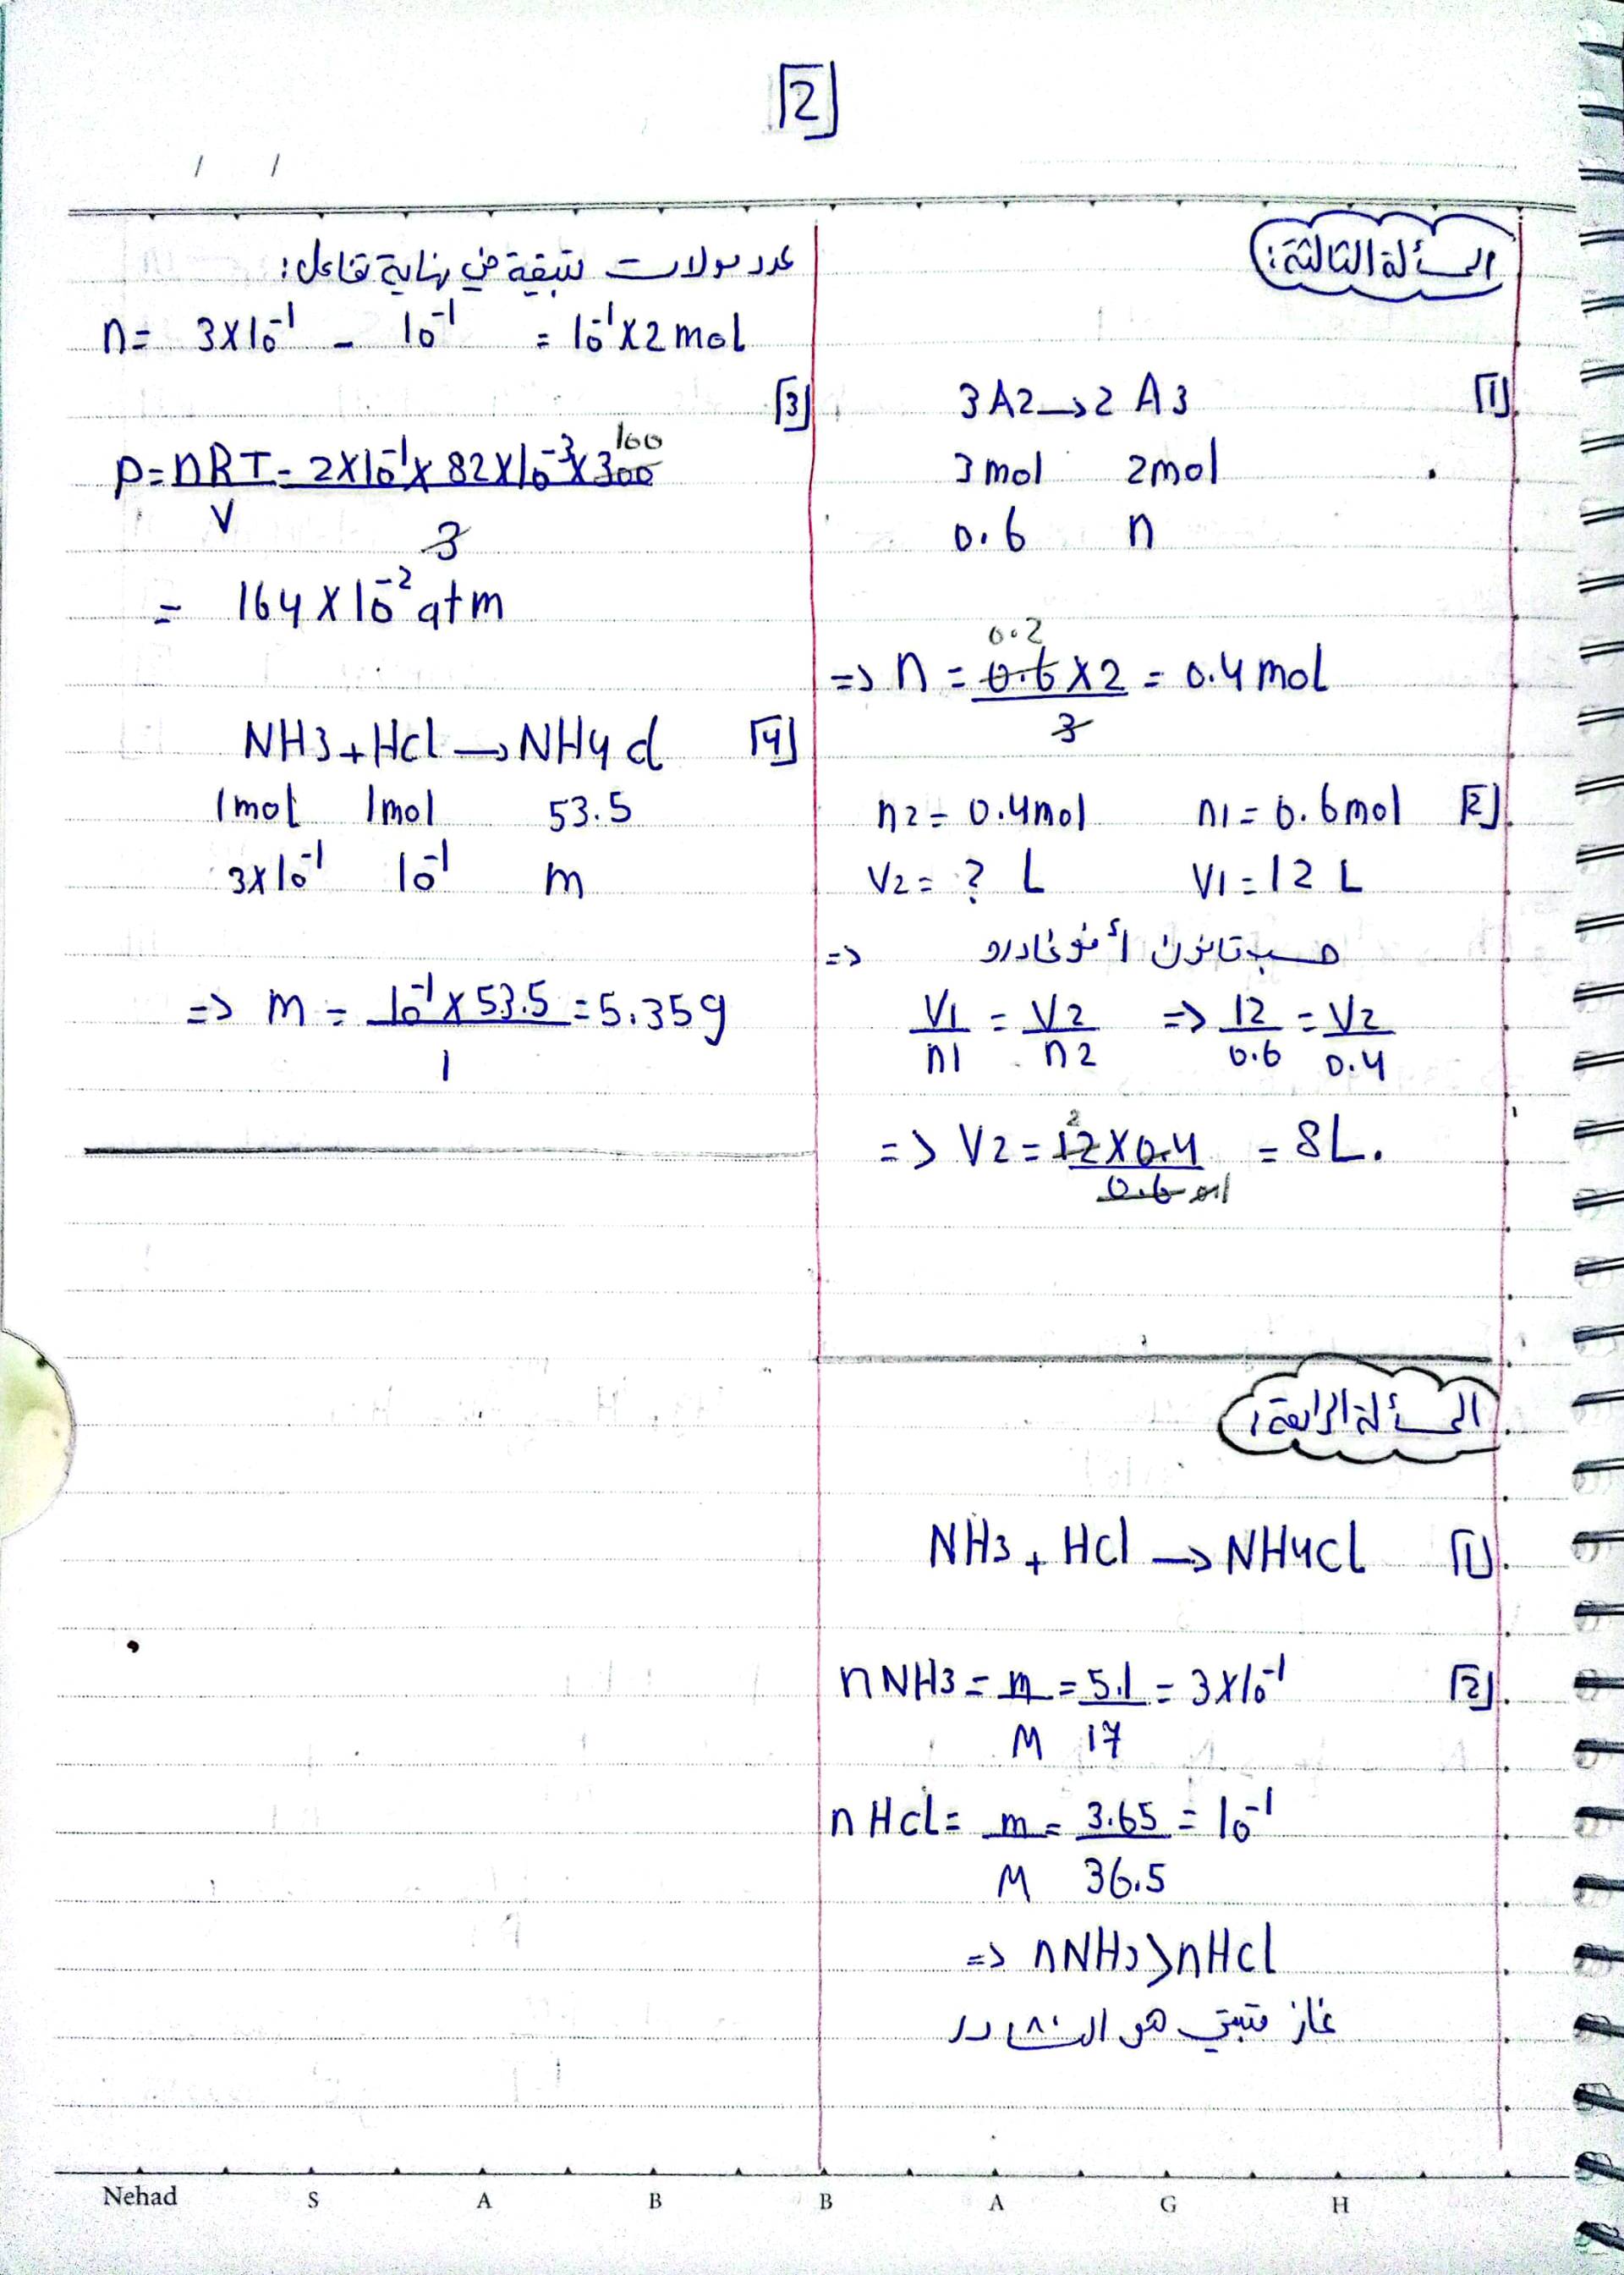 [2]
/ /
المسألة الثالثة:
[1] 3A2 → 2 A3
3mol 2mol
0.6 n
0.2
=> n = 0.6 x 2 = 0.4 mol
3
[2] n1 = 0.6mol n2 = 0.4mol
V1 = 12 L V2 = ? L
=> حسب قانون أفوغادرو
V1 = V2 => 12 = V2
n1 n2 0.6 0.4
2
=> V2 = 12 x 0.4 = 8L.
0.6 0.1
المسألة الرابعة:
[1] NH3 + HCl → NH4Cl
[2] nNH3 = m = 5.1 = 3x10⁻¹
M 17
nHCl = m = 3.65 = 10⁻¹
M 36.5
=> nNH3 > nHCl
غاز متبقي هو النشادر
عدد مولات متبقية في نهاية تفاعل:
n = 3x10⁻¹ - 10⁻¹ = 10⁻¹x2 mol
[3]
100
P = nRT = 2x10⁻¹x 82x10⁻³x300
V 3
= 164 x 10⁻² atm
[4] NH3 + HCl → NH4Cl
1mol 1mol 53.5
3x10⁻¹ 10⁻¹ m
=> m = 10⁻¹ x 53.5 = 5.35g
1
Nehad S A B B A G H